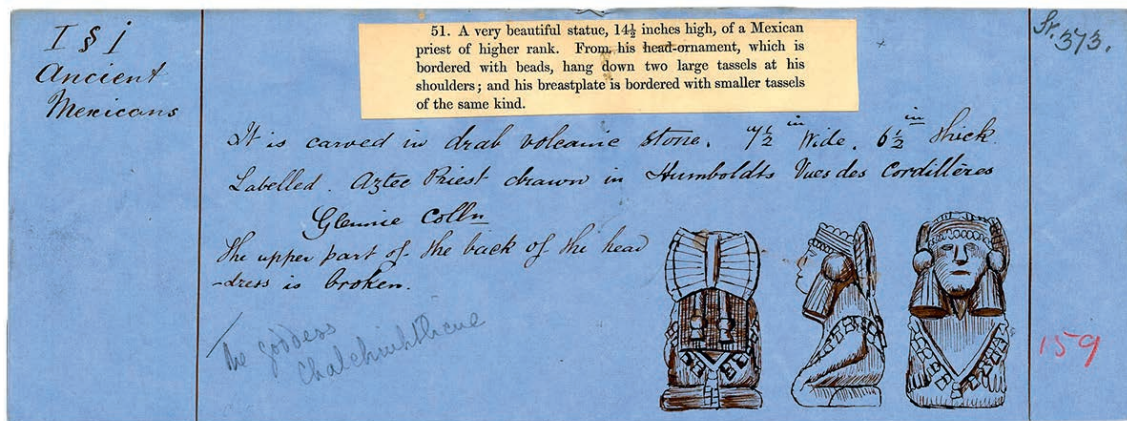 I § i
Ancient
Mexicans
51. A very beautiful statue, 14½ inches high, of a Mexican
priest of higher rank. From his head-ornament, which is
bordered with beads, hang down two large tassels at his
shoulders; and his breastplate is bordered with smaller tassels
of the same kind.
St. 373.
It is carved in drab volcanic stone. 7½ in Wide. 6½ in thick.
Labelled. Aztec Priest drawn in Humboldts Vues des Cordillères
Glennie Colln
The upper part of the back of the head
-dress is broken.
The goddess
Chalchiuhtlicue
159